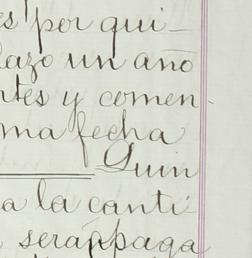 es por qui-
lazo un año
ntes y comen-
ma fecha
Quin
a la canti
serappaga